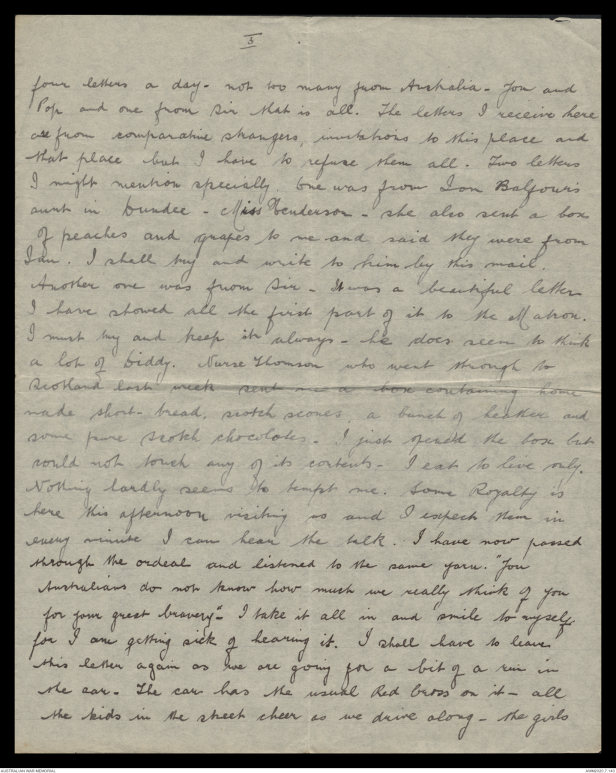 5
four letters a day - not too many from Australia - You and
Pop and one from Sir that is all. The letters I receive here
are from comparative strangers, invitations to this place and
that place but I have to refuse them all. Two letters
I might mention specially. One was from Ian Balfour's
aunt in Dundee - Miss Henderson - she also sent a box
of peaches and grapes to me and said they were from
Ian. I shall try and write to him by this mail.
Another one was from Sir - It was a beautiful letter
I have showed all the first part of it to the Matron.
I must try and keep it always - he does seem to think
a lot of Biddy. Nurse Thomson who went through to
Scotland last week sent me a box containing home
made short-bread, scotch scones, a bunch of heather and
some pure scotch chocolates - I just opened the box but
could not touch any of its contents - I eat to live only.
Nothing hardly seems to tempt me. Some Royalty is
here this afternoon visiting us and I expect them in
every minute I can hear the talk. I have now passed
through the ordeal and listened to the same yarn. "You
Australians do not know how much we really think of you
for your great bravery." I take it all in and smile to myself
for I am getting sick of hearing it. I shall have to leave
this letter again as we are going for a bit of a run in
the car - The car has the usual Red Cross on it - all
the kids in the street cheer as we drive along - the girls
AUSTRALIAN WAR MEMORIAL